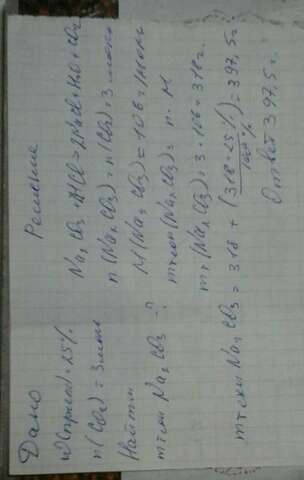 Дано
W(прим) = 25%
n(CO2) = 3 моль
Найти
m техн Na2CO3 - ?
Решение
Na2CO3 + 2HCl = 2NaCl + H2O + CO2
n(Na2CO3) = n(CO2) = 3 моль
M(Na2CO3) = 106 г/моль
m техн (Na2CO3) = n · M
m (Na2CO3) = 3 · 106 = 318 г.
m техн Na2CO3 = 318 + (318 · 25% / 100%) = 397,5 г.
Ответ 397,5 г.